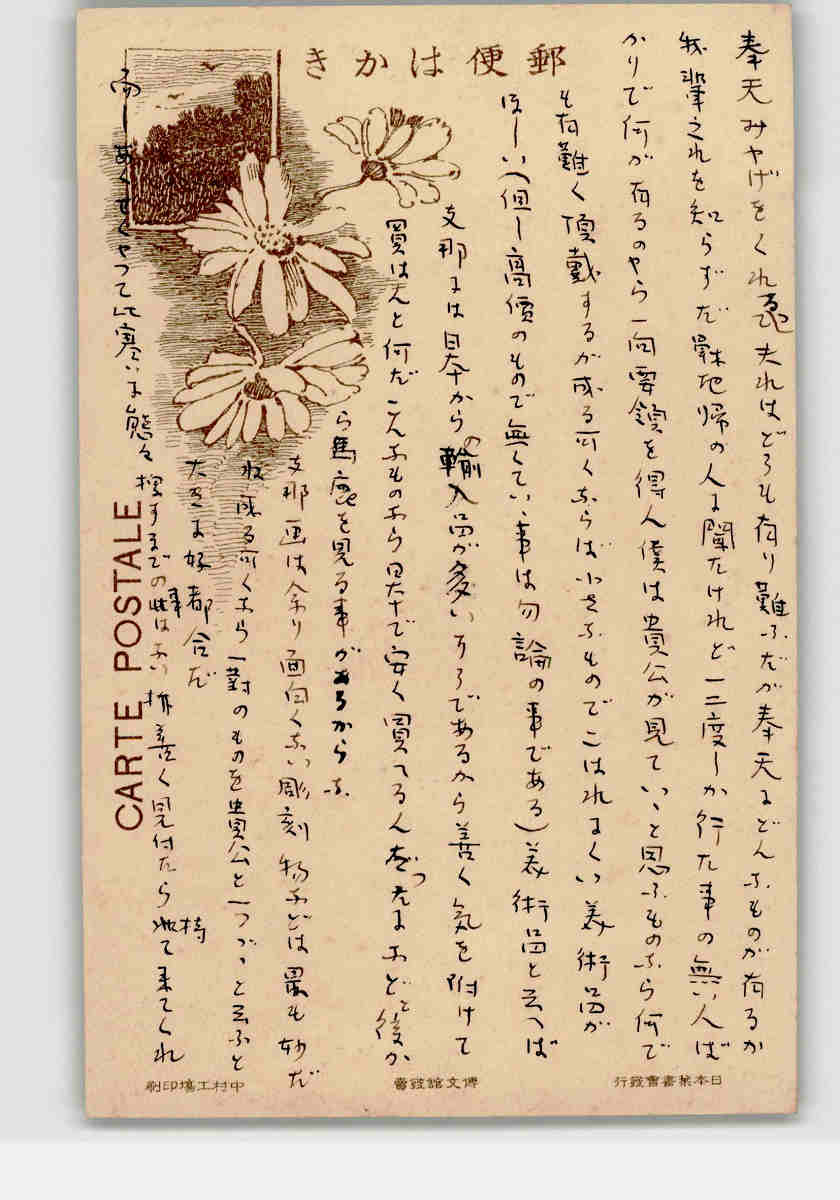 郵便はかき
奉天みやげをくれる 夫れはどうも有り難ふだが奉天にどんなものが有るか
我輩之れを知らずだ 帰の人に聞たけれど一二度しか行た事の無い人ば
かりで何が有るのやら一向要領を得ん 僕は貴公が見ていゝと思ふものなら何で
も有難く頂戴するが成る可くならば小さなものでこはれにくい美術品が
ほしい(但し高價のもので無くていゝ事は勿論の事である)美術品と云へば
支那には日本からの輸入品が多いさうであるから善く気を附けて
買はんと何だ こんなものなら日本で安く買へる などと後か
ら馬鹿を見る事があるからな
支那画は余り面白くない 彫刻物などは最も妙だ
成る可くなら一對のものを貴公と一つづゝと云ふと
大きに好都合だ
而しあくせくやつて此寒いに態々探すまでの事はない 善く見付たら持て来てくれ
CARTE POSTALE
日本葉書會發行
博文館發賣
中村工場印刷